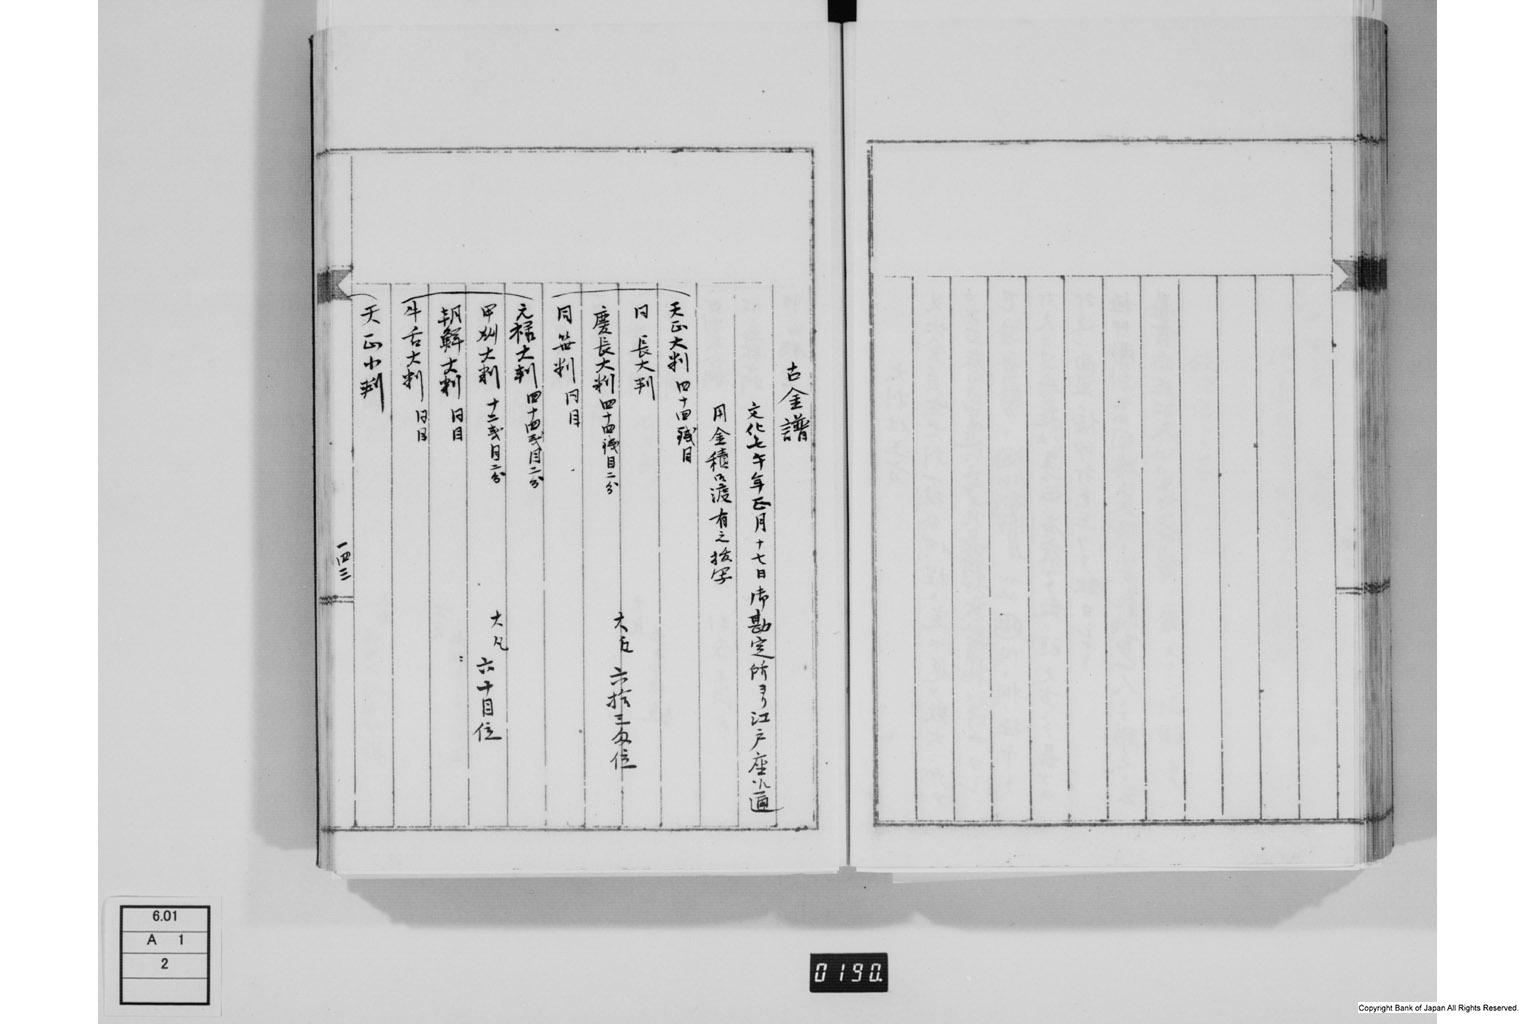 古金譜
文化七午年正月十七日御勘定所ヨリ江戸座江廻
用金積御渡有之扱写
天正大判 四十四弐目
同 長大判
慶長大判 四十四弐目二分
大凡 六拾三匁位
同 笹判 同目
元禄大判 四十四弐目二分
甲州大判 十二弐目二分
大凡 六十目位
朝鮮大判 同目
牛舌大判 同目
天正小判
一四三
6.01
A 1
2
0190.
Copyright Bank of Japan All Rights Reserved.